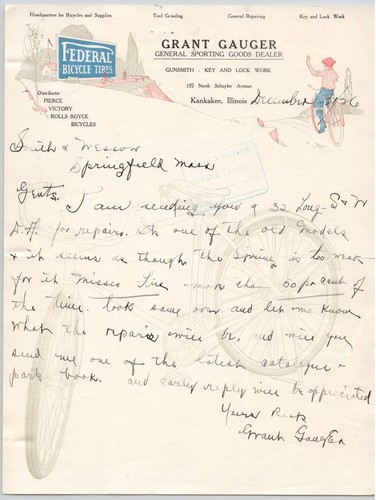 Headquarters for Bicycles and Supplies Tool Grinding General Repairing Key and Lock Work
FEDERAL
BICYCLE TIRES
GRANT GAUGER
GENERAL SPORTING GOODS DEALER
GUNSMITH - KEY AND LOCK WORK
Distributor
PIERCE
VICTORY
ROLLS ROYCE
BICYCLES
157 North Schuyler Avenue
Kankakee, Illinois December 26
Smith & Wesson
Springfield Mass
Gents. I am sending you a 32 Long S & W
D.A. for repairs. Its one of the old models
& it seems as though the spring is too weak
for it misses fire more than 50 per cent of
the time. look same over and let me know
what the repairs will be, and will you
send me one of the latest catalogue &
parts book. and early reply will be appreciated
Yours Resp
Grant Gauger